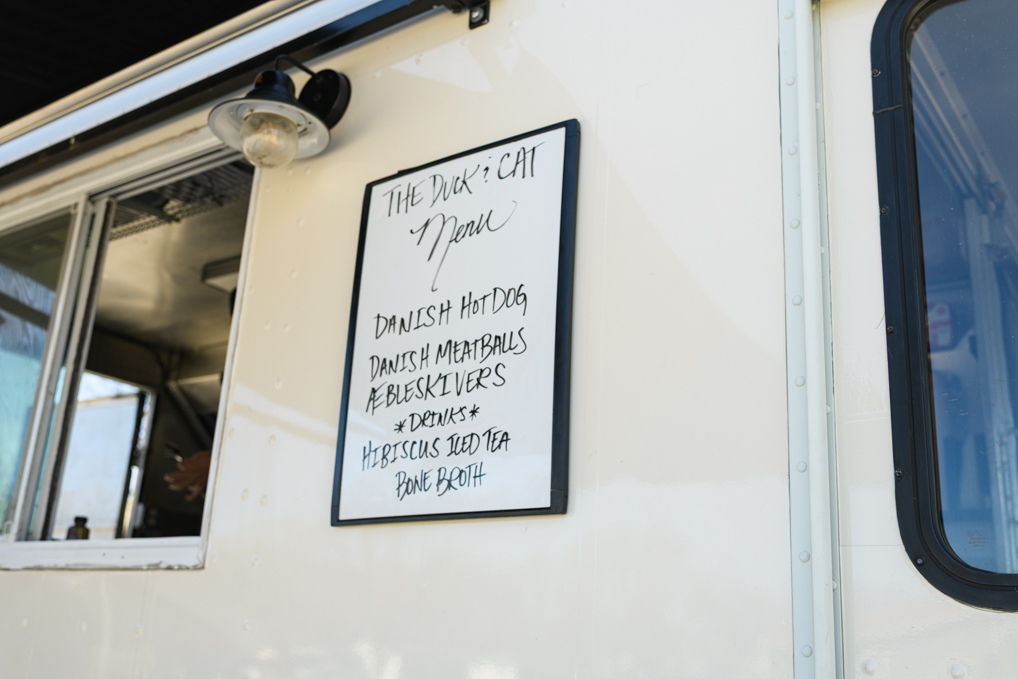 THE DUCK & CAT
Menu
DANISH HOTDOG
DANISH MEATBALLS
ÆBLESKIVERS
*DRINKS*
HIBISCUS ICED TEA
BONE BROTH